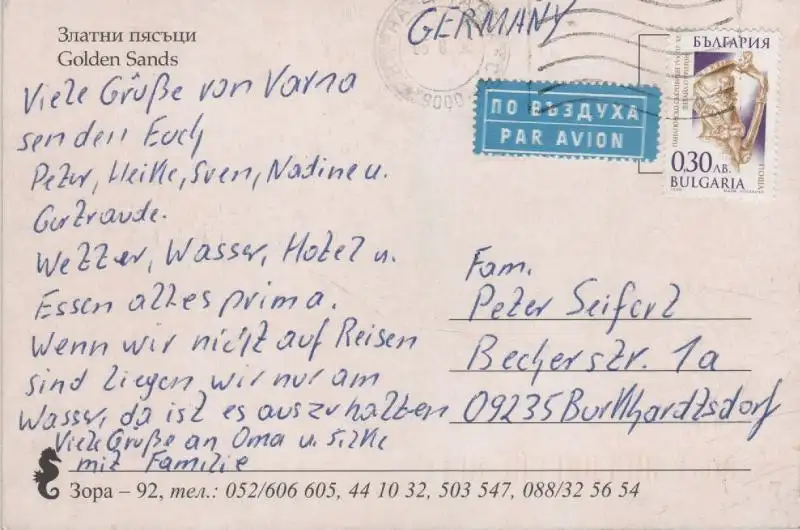 Златни пясъци
Golden Sands
GERMANY
9000
ПО ВЪЗДУХА
PAR AVION
БЪЛГАРИЯ
0,30 ЛВ.
BULGARIA
ПОЩА
Viele Grüße von Varna
senden Euch
Peter, Heike, Sven, Nadine u.
Gertraude.
Wetter, Wasser, Hotel u.
Essen alles prima.
Wenn wir nicht auf Reisen
sind liegen wir nur am
Wasser, da ist es auszuhalten
Viele Grüße an Oma u. Silke
mit Familie
Fam.
Peter Seifert
Becherstr. 1a
09235 Burkhardtsdorf
Зора – 92, тел.: 052/606 605, 44 10 32, 503 547, 088/32 56 54